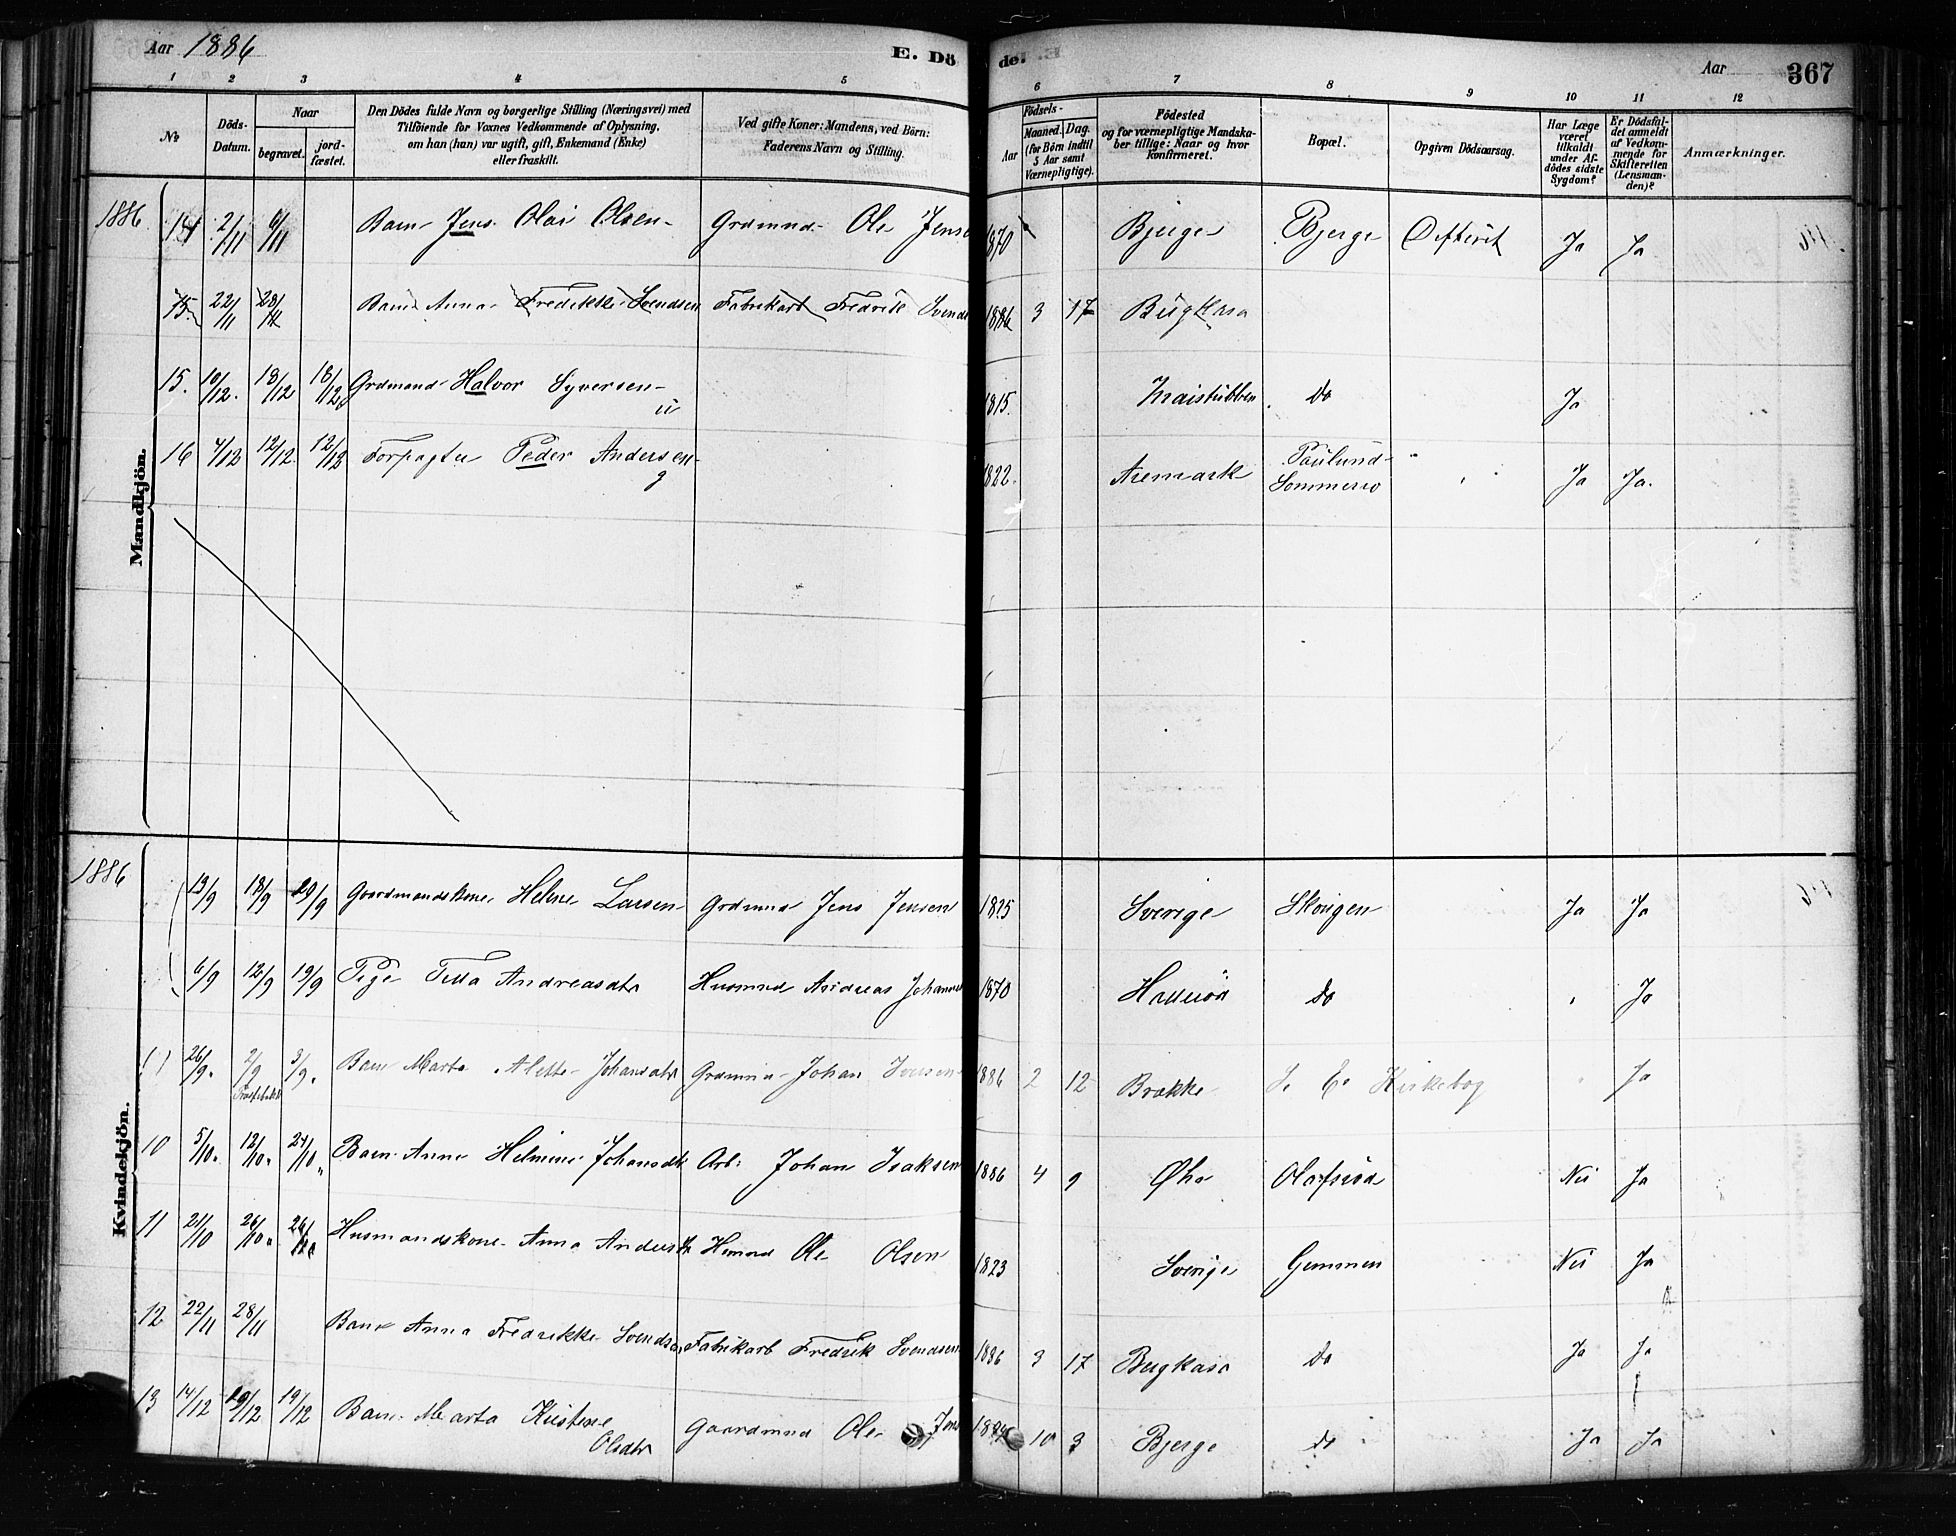 Aar 1886 E. Dö de. Aar 367
1 2 3 4 5 6 7 8 9 10 11 12
No
Döds-Datum.
Naar
begravet.
jord-fæstet.
Den Dödes fulde Navn og borgerlige Stilling (Næringsvei) med
Tilföiende for Voxnes Vedkommende af Oplysning,
om han (han) var ugift, gift, Enkemand (Enke)
eller fraskilt.
Ved gifte Koner: Mandens, ved Börn:
Faderens Navn og Stilling.
Födsels-
Aar Maaned. Dag.
(for Börn indtil
5 Aar samt
Værnepligtige).
Födested
og for værnepligtige Mandska-
ber tillige: Naar og hvor
konfirmeret.
Bopæl.
Opgiven Dödsaarsag.
Har Læge
været
tilkaldt
under Af-
dödes sidste
Sygdom?
Er Dödsfal-
det anmeldt
af Vedkom-
mende for
Skifteretten
(Lensman-
den)?
Anmærkninger.
Mandkjön.
1886 14 2/11 6/11 Barn Jens Olai Olsen Grdmnd Ole Jens 1870 Bjerge Bjerge Difterit Ja Ja
15. 22/11 28/11 Barn Anna Fredrikke Svendsen Fabrikarb Fredrik Svends 1886 3 17 Bugkasa
15. 10/12. 18/12 18/12 Grdmand Halvor Syversen u 1815. Do Ja
16 4/12 12/12. 12/12 Forpagter Peder Andersen g 1822. Aremark Paulund Sommerro Ja Ja.
Kvindekjön.
1886 13/9 18/9 20/9 Gaardmandskone Helene Larsen Grdmnd Jens Jensen 1825 Sverige Skougen Ja Ja
6/9 12/9 19/9 Pige Andreasdtr Husmnd Andreas 1870 do Ja
26/9. 2/9 3/9. Barn Marta Alette Johansdtr Grdmnd Johan 1886 2 12 Brække Kirkebog Ja
10 5/10. 12/10. 24/10. Barn Anne Helmine Johansdtr Arb: Johan Isaksen 1886 4 9 Olafsröd Nei Ja
11 21/10 26/10. Husmandskone Anna Anders Hmnd Ole Olsen 1823 Sverige Gemmen Nei Ja
12 22/11 28/11 Barn Anna Fredrikke Svends Fabrikarb Fredrik Svendsen 1886 3 17 Bugkasa do Ja Ja
13 14/12 19/12 19/12 Barn Marta Kristine Olsdtr Gaardmnd Ole Jens 10 3 Bjerge do Ja Ja